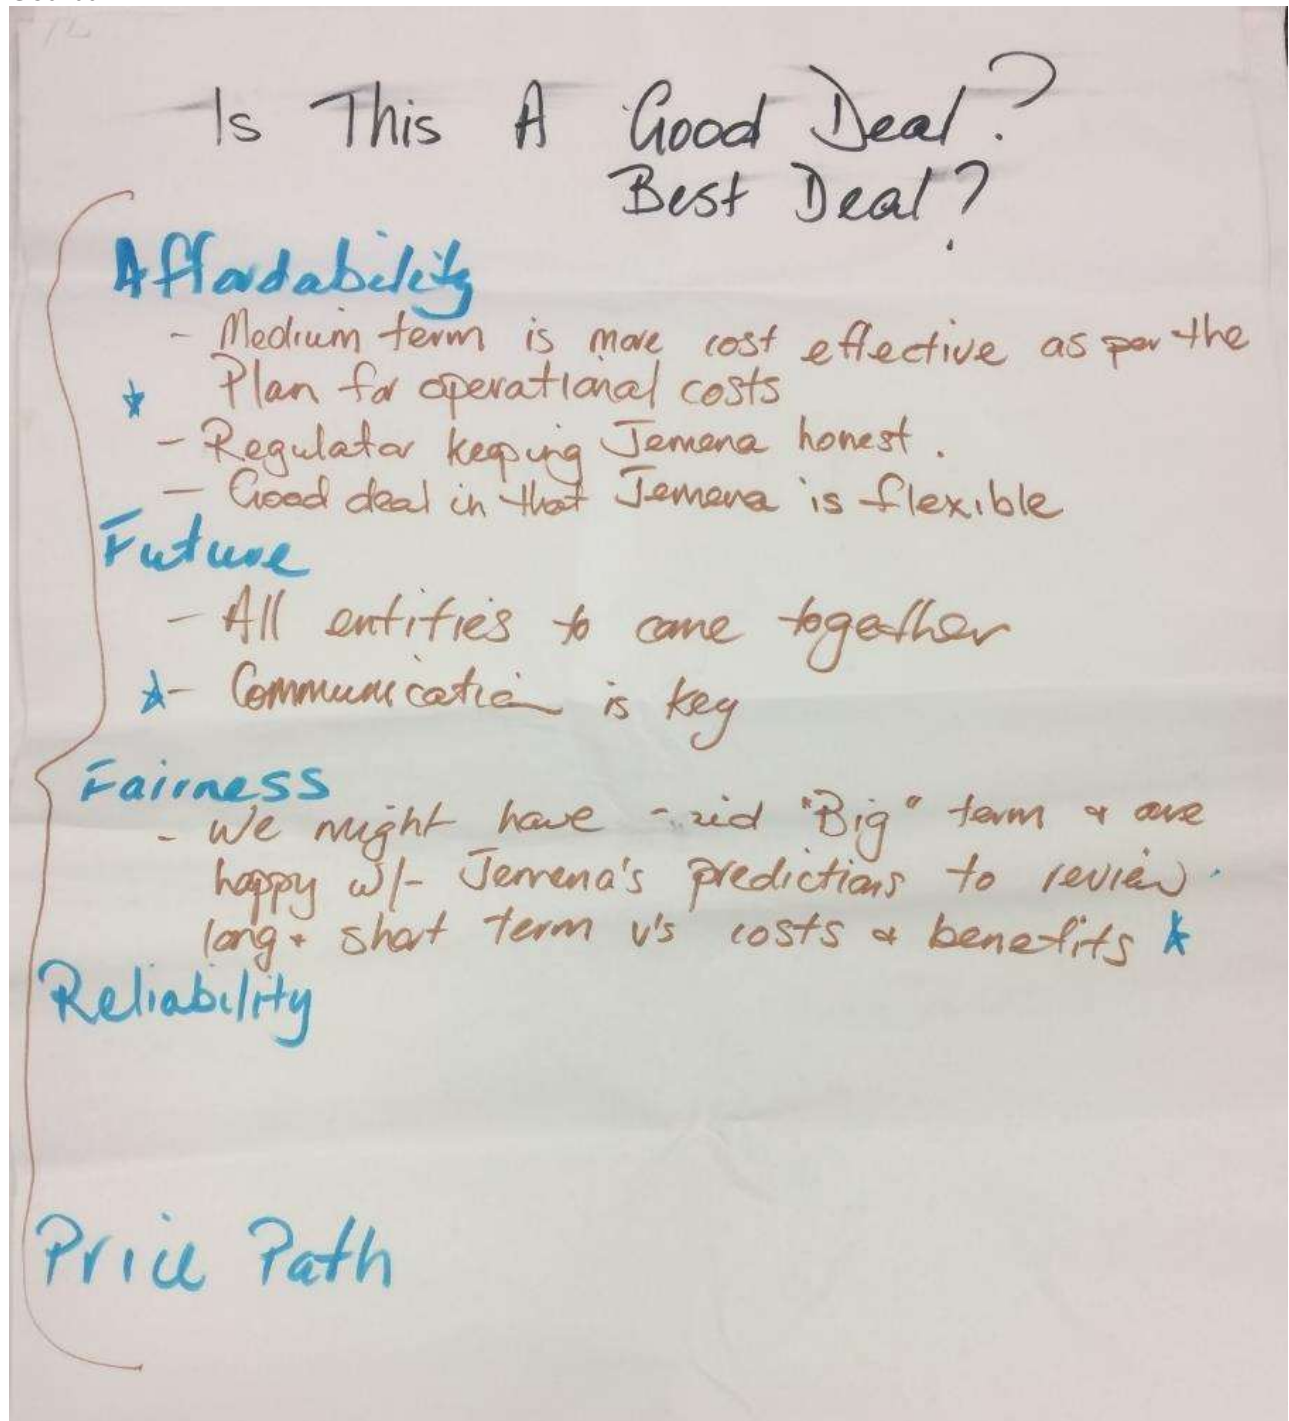 Is This A Good Deal?
Best Deal?
Affordability
- Medium term is more cost effective as per the
Plan for operational costs
- Regulator keeping Jemena honest.
- Good deal in that Jemena is flexible
Future
- All entities to come together
- Communication is key
Fairness
- We might have "Big" term & are
happy w/- Jemena's predictions to review
long + short term v's costs & benefits
Reliability
Price Path